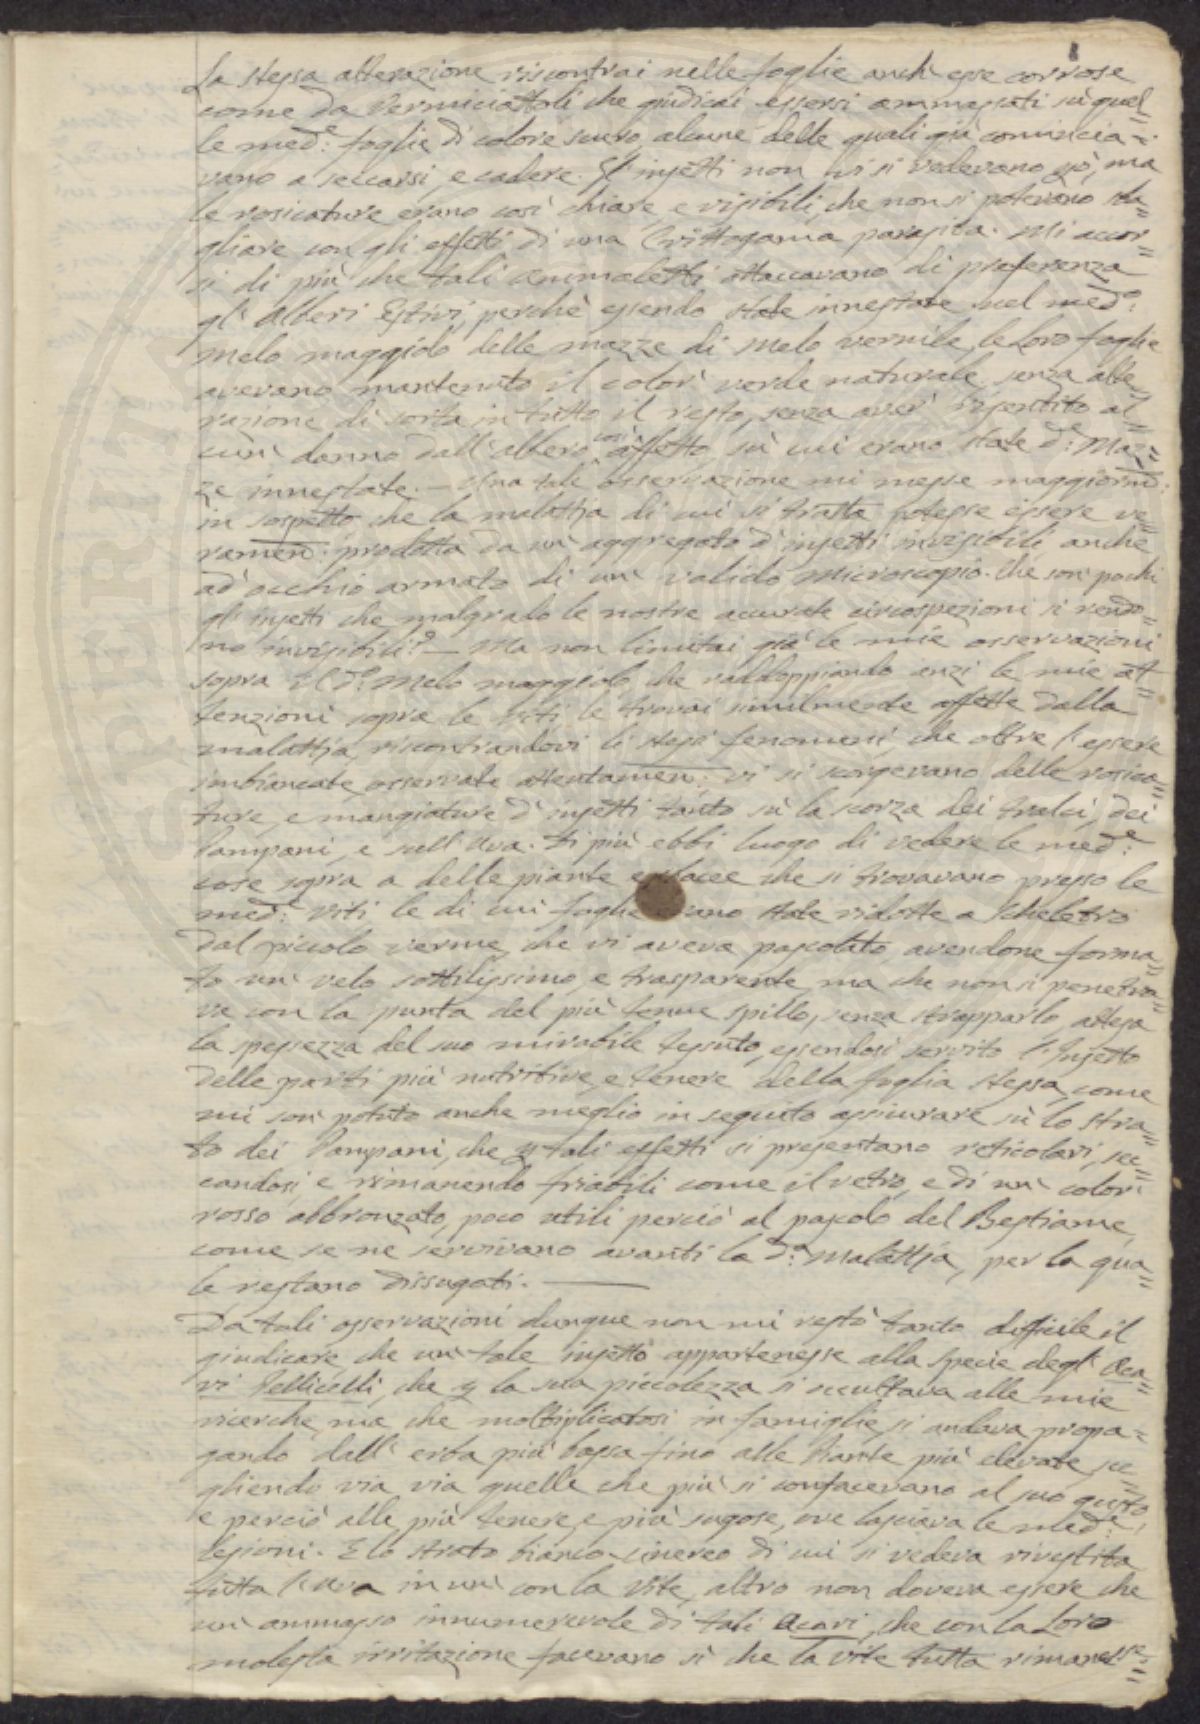 La stessa alterazione riscontrai nelle foglie anch'esse corrose
come da Vermiciattoli che giudicai essersi ammassati sù quel=
le med.e foglie di colore scuro, alcune delle quali già comincia=
vano a seccarsi, e cadere. Gl'insetti non vi si vedevano già, ma
le rosicature erano così chiare, e visibili, che non si potevano sba=
gliare con gli effetti di una Crittogama parasita. Mi accor=
si di più che tali animaletti attaccavano di preferenza
gl'Alberi Estivi, perchè essendo state innestate nel med.o
melo maggiolo delle mazze di melo vernile, le loro foglie
avevano mantenuto il color verde naturale senza alte=
razione di sorta in tutto il resto, senza aver risentito al=
cun danno dall'albero così affetto, sù cui erano state d.e Maz=
ze innestate. — Una tale osservazione mi messe maggiorm.
in sospetto che la malattia di cui si tratta potesse essere ve=
ramen. prodotta da un aggregato d'insetti invisibili anche
ad occhio armato di un valido Microscopio. Che son pochi
gl'insetti che malgrado le nostre accurate circospezioni si rendo=
no invisibili? — Ma non limitai già le mie osservazioni
sopra il d.o Melo maggiolo, che raddoppiando anzi le mie at=
tenzioni sopra le Viti le trovai similmente affette dalla
malattia, riscontrandovi li stessi fenomeni, che oltre l'essere
imbiancate, osservate attentamen. vi si scorgevano delle rosica=
ture, e mangiature d'insetti tanto sù la scorza dei tralci, dei
Pampani, e sull'Uva. Di più ebbi luogo di vedere le med.e
cose sopra a delle piante che si trovavano presso le
med.e Viti le di cui foglie erano state ridotte a Scheletro
dal piccolo verme, che vi aveva pascolato, avendone forma=
to un velo sottilissimo, e trasparente, ma che non si penetra=
va con la punta del più tenue spillo, senza strapparlo, attesa
la spessezza del suo mirabile tessuto, essendosi servito l'Insetto
delle parti più nutritive, e tenere della foglia stessa, come
mi son potuto anche meglio in seguito assicurare sù lo stra=
to dei Pampani, che p tali effetti si presentano reticolari, sec=
candosi, e rimanendo friabili come il vetro, e di un color
rosso abbronzato, poco utili perciò al pascolo del Bestiame,
come se ne servivano avanti la d.a Malattia, per la qua=
le restano dissugati. —
Da tali osservazioni dunque non mi restò tanto difficile il
giudicare, che un tale insetto appartenesse alla specie degl'Aca=
ri Pellicelli, che p la sua piccolezza si occultava alle mie
ricerche, ma che moltiplicatosi in famiglie, si andava propa=
gando dall'erba più bassa fino alle Piante più elevate, sce=
gliendo via via quelle che più si confacevano al suo gusto,
e perciò alle più tenere, e più sugose, ove lasciava le med.e
lesioni. E lo strato bianco-cinereo di cui si vedeva rivestita
tutta l'Uva in un con la Vite, altro non doveva essere che
un ammasso innumerevole di tali Acari, che con la Loro
molesta irritazione facevano sì che la Vite tutta rimanesse=